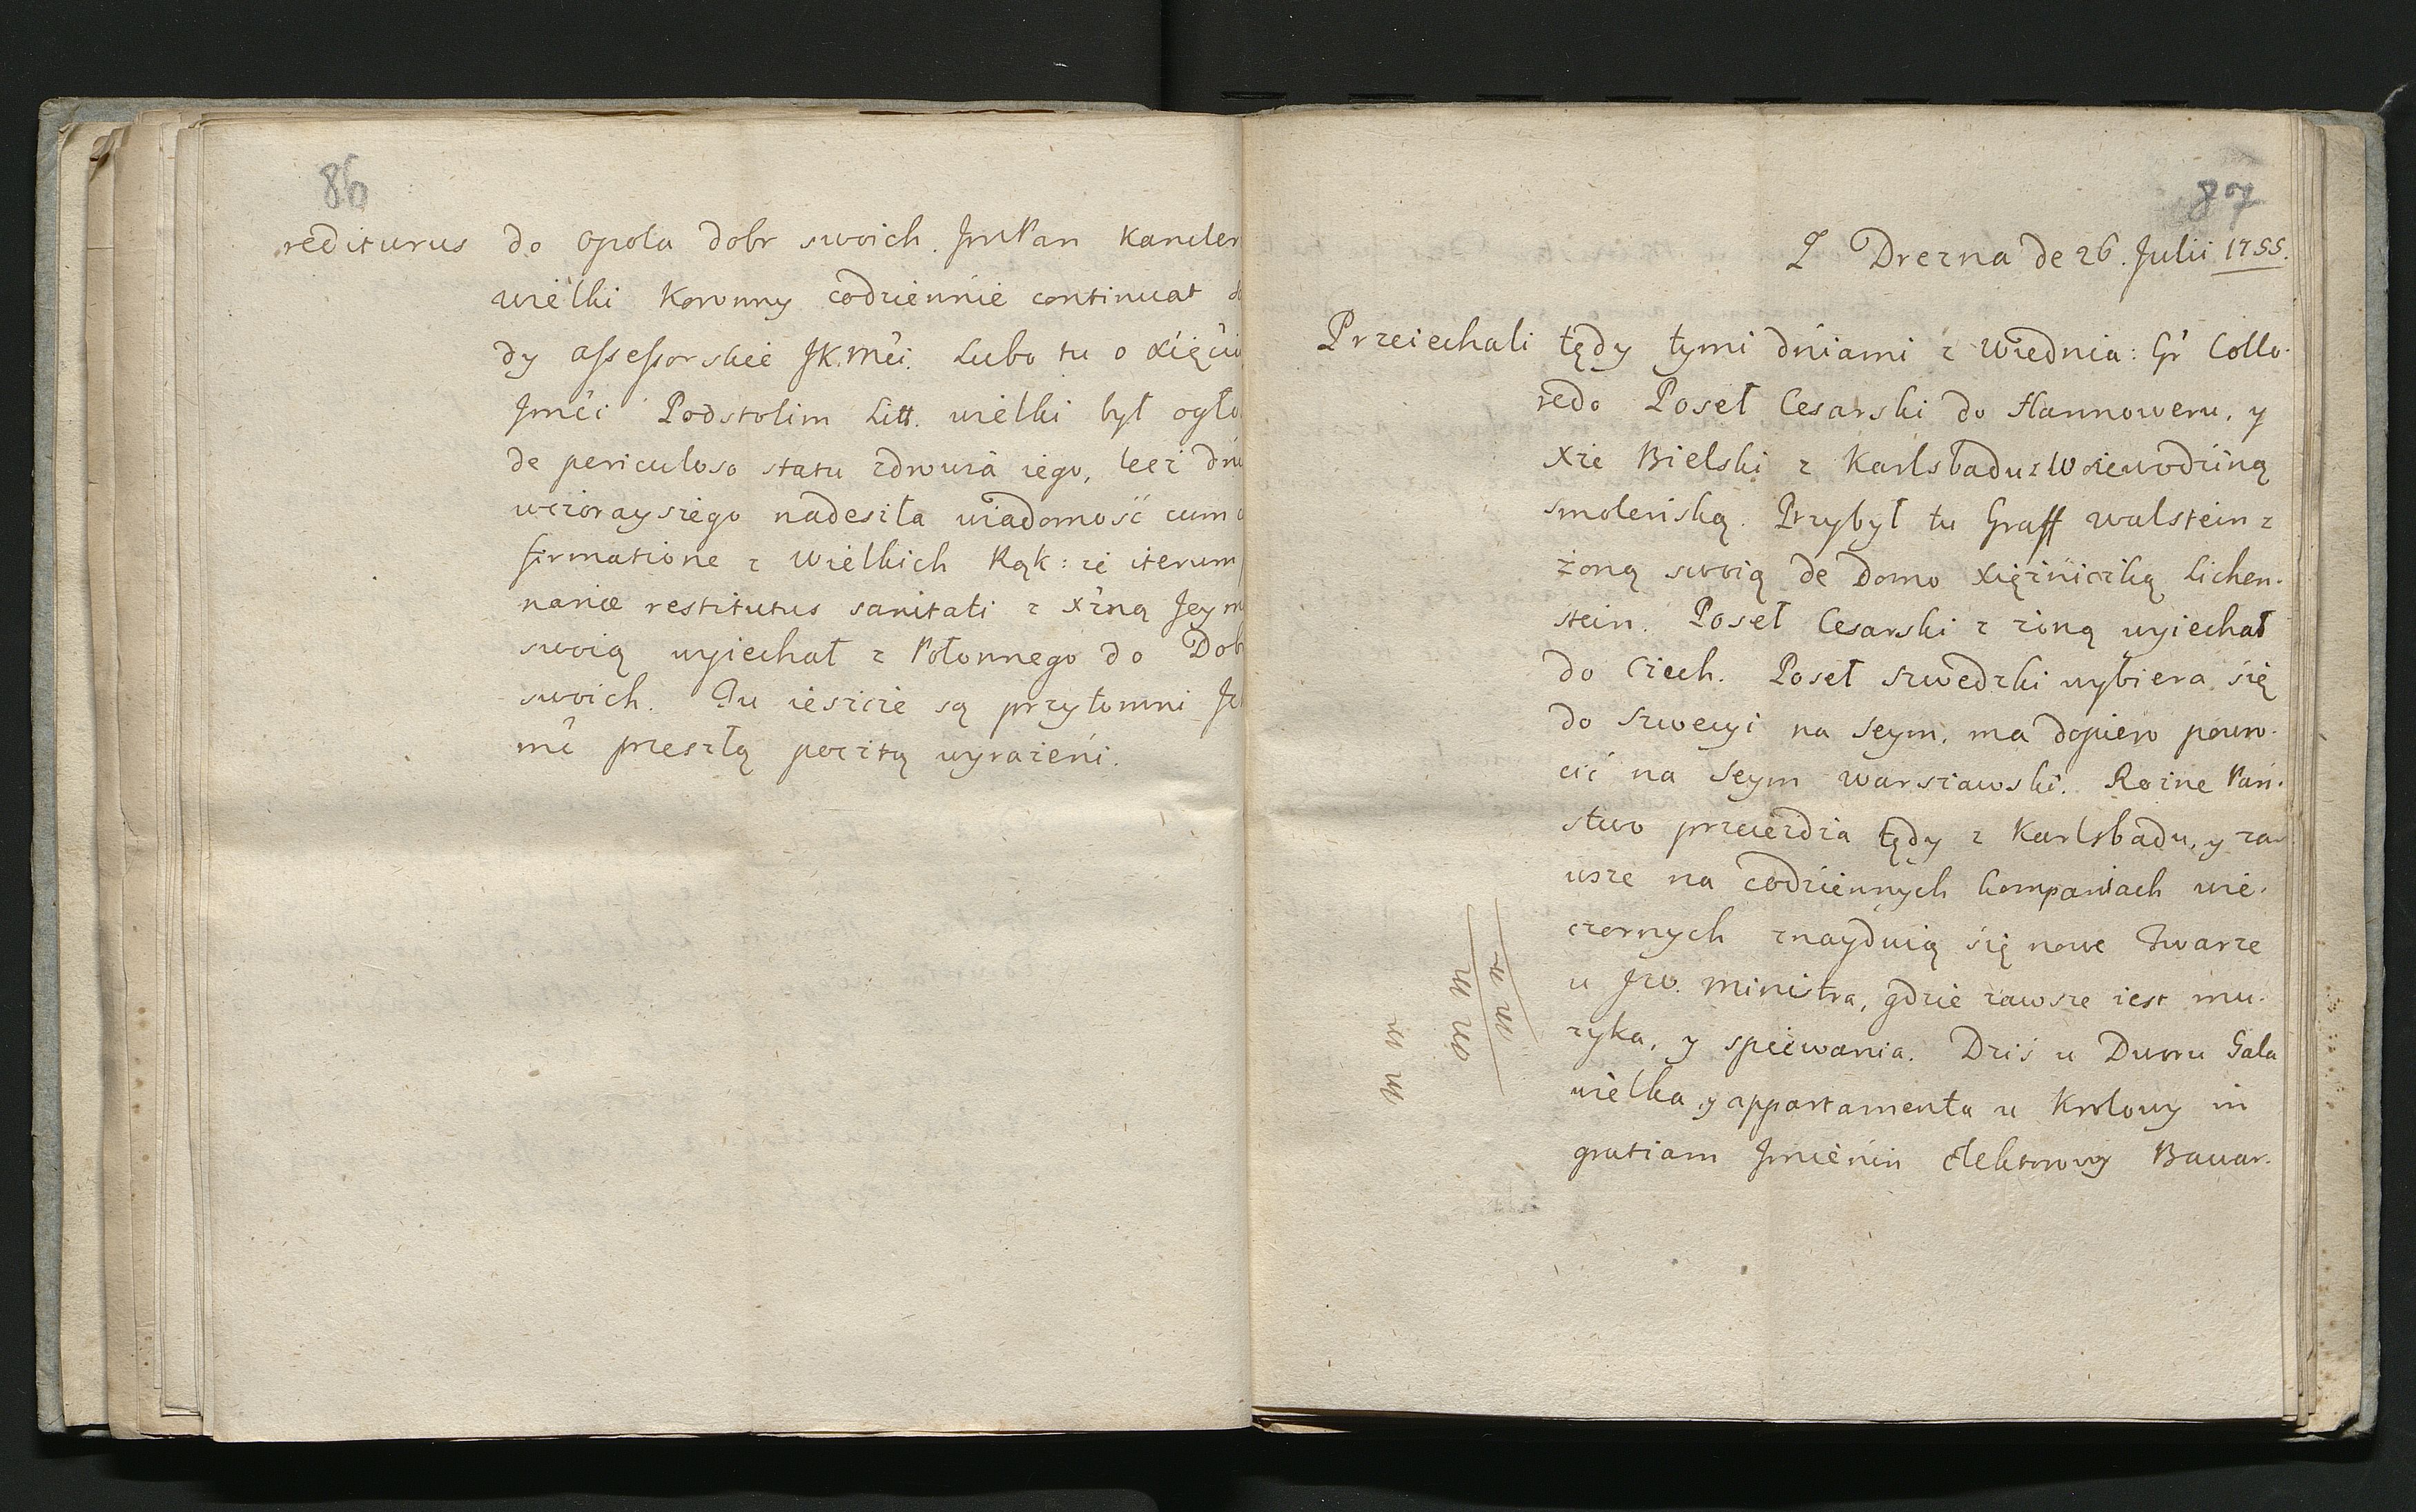 86
rediturus do Opola dobr swoich. JmPan Kancler
wielki Koronny codziennie continuat
dy assessorskie JK.Mci. Lubo tu o Xięciu
Jmći Podstolim Litt. wielki był ogło
de periculoso statu zdrowia iego, lecz dnia
wczorayszego nadeszła wiadomość cum
firmatione z Wielkich Rąk: że iterum
nariæ restitutus sanitati z Xżną Jeym
swoią wyiechał z Połonnego do Dobr
swoich. Tu ieszcze są przytomni
mć przeszłą pocztą wyrażeni.
87
Z Drezna de 26. Julii 1755.
Przeiechali tędy tymi dniami z Wiednia: Gr Collo-
redo Poseł Cesarski do Hannoweru, y
Xże Bielski z Karlsbadu z Woiewodziną
Smoleńską. Przybył tu Graff Walstein z
żoną swoią de Domo Xiężniczką Lichen-
stein. Poseł Cesarski z żoną wyiechał
do Czech. Poseł Szwedzki wybiera się
do Szwecyi na Seym, ma dopiero powro-
cić na Seym Warszawski. Rożne Pań-
stwo przeieżdża tędy z Karlsbadu, y za-
wsze na codziennych kompaniach wie-
czornych znayduią się nowe Twarze
u JW. Ministra, gdzie zawsze iest mu-
zyka, y spiewania. Dziś u Dworu Gala
wielka, y appartamenta u Krolowy in
gratiam Jmienin Elektorowy Bawar.